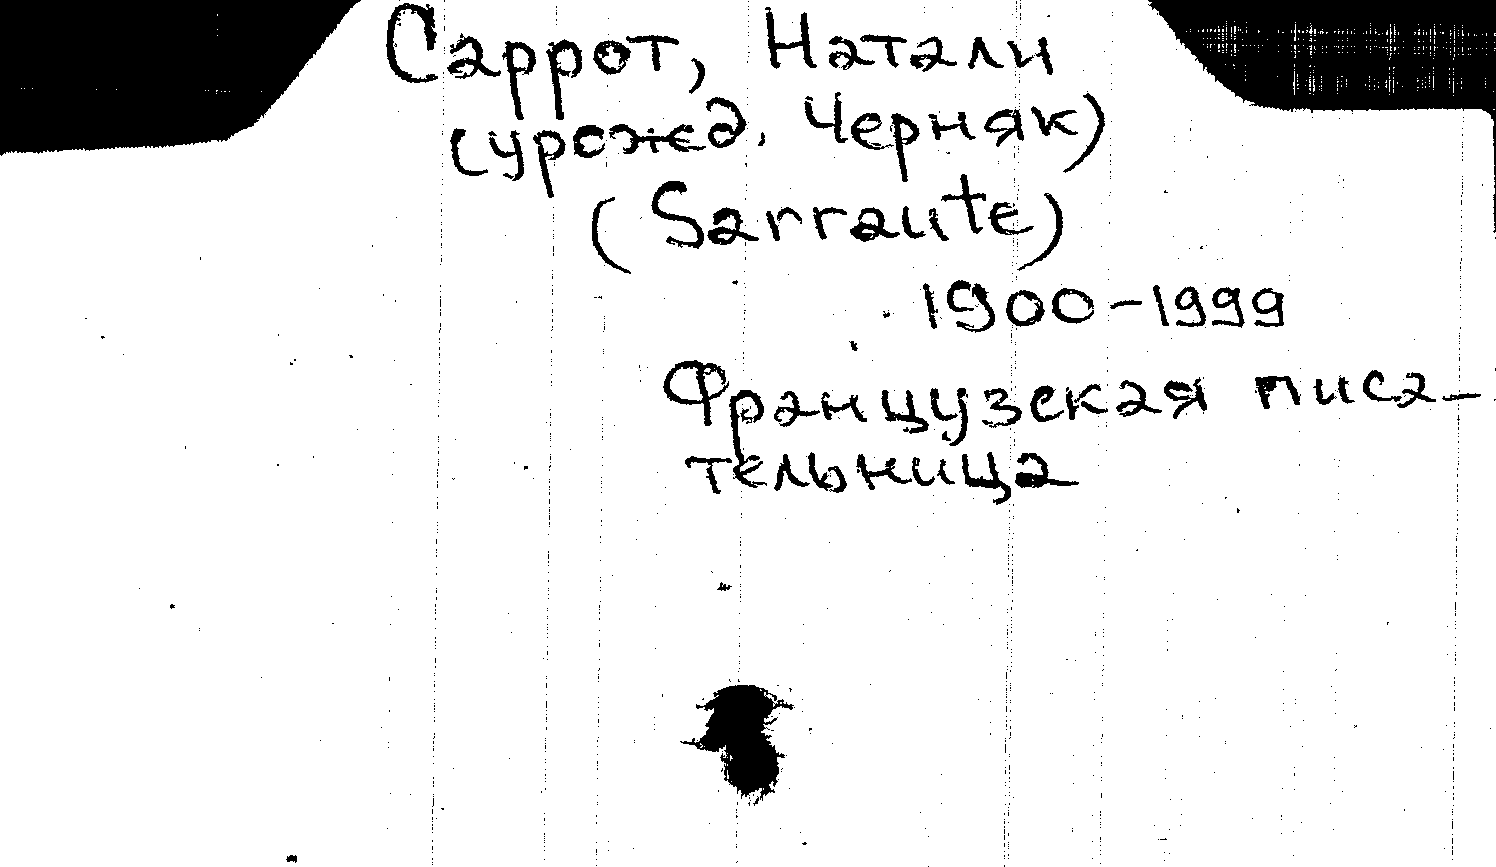 Саррот, Натали
(урожд. Черняк)
(Sarraute)
1900-1999
Французская писа-
тельница